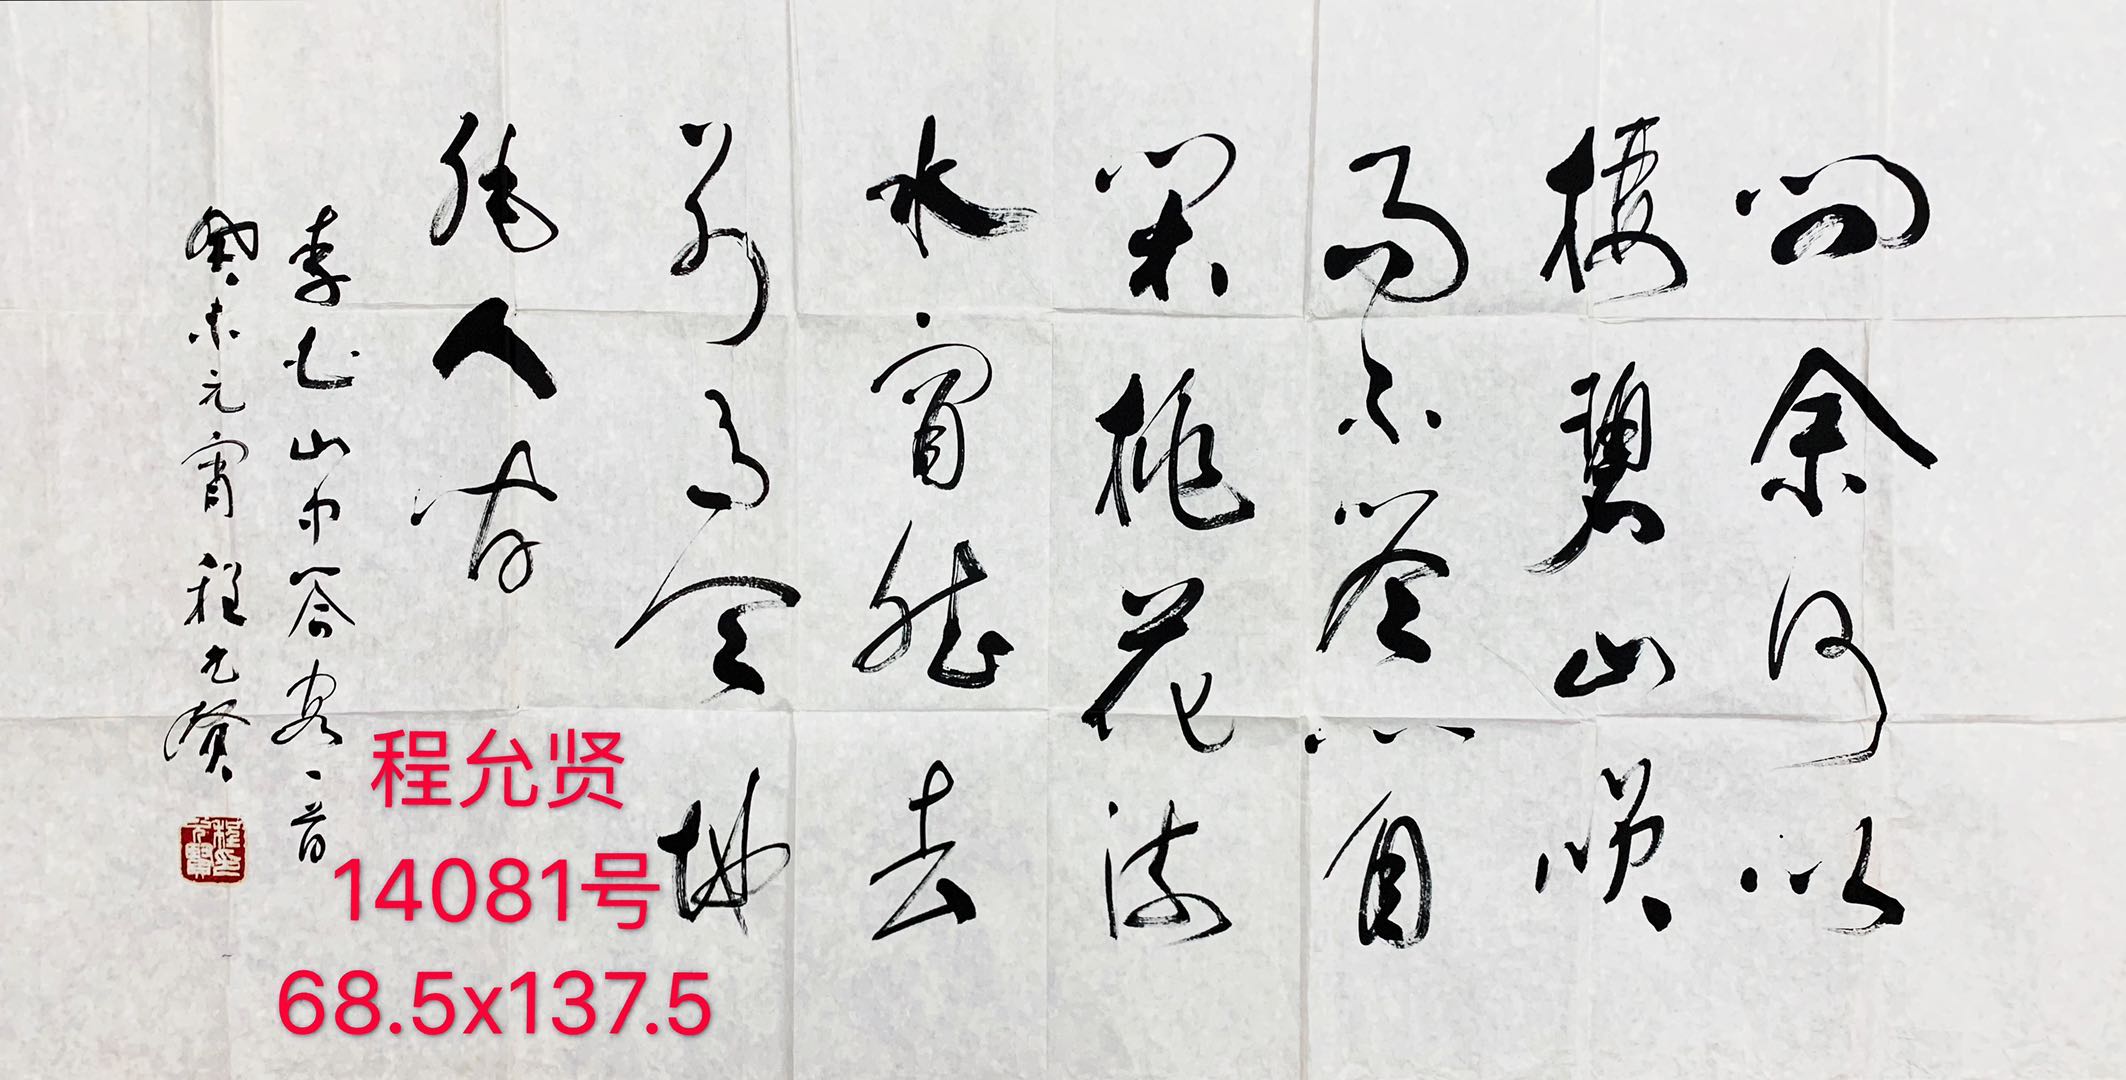 問余何以
棲碧山咲
而不答心自
閑桃花流
水窅然去
別有天地
非人间
李白山中答客一首
癸未元宵 程允賢
程允賢印
程允贤
14081号
68.5x137.5